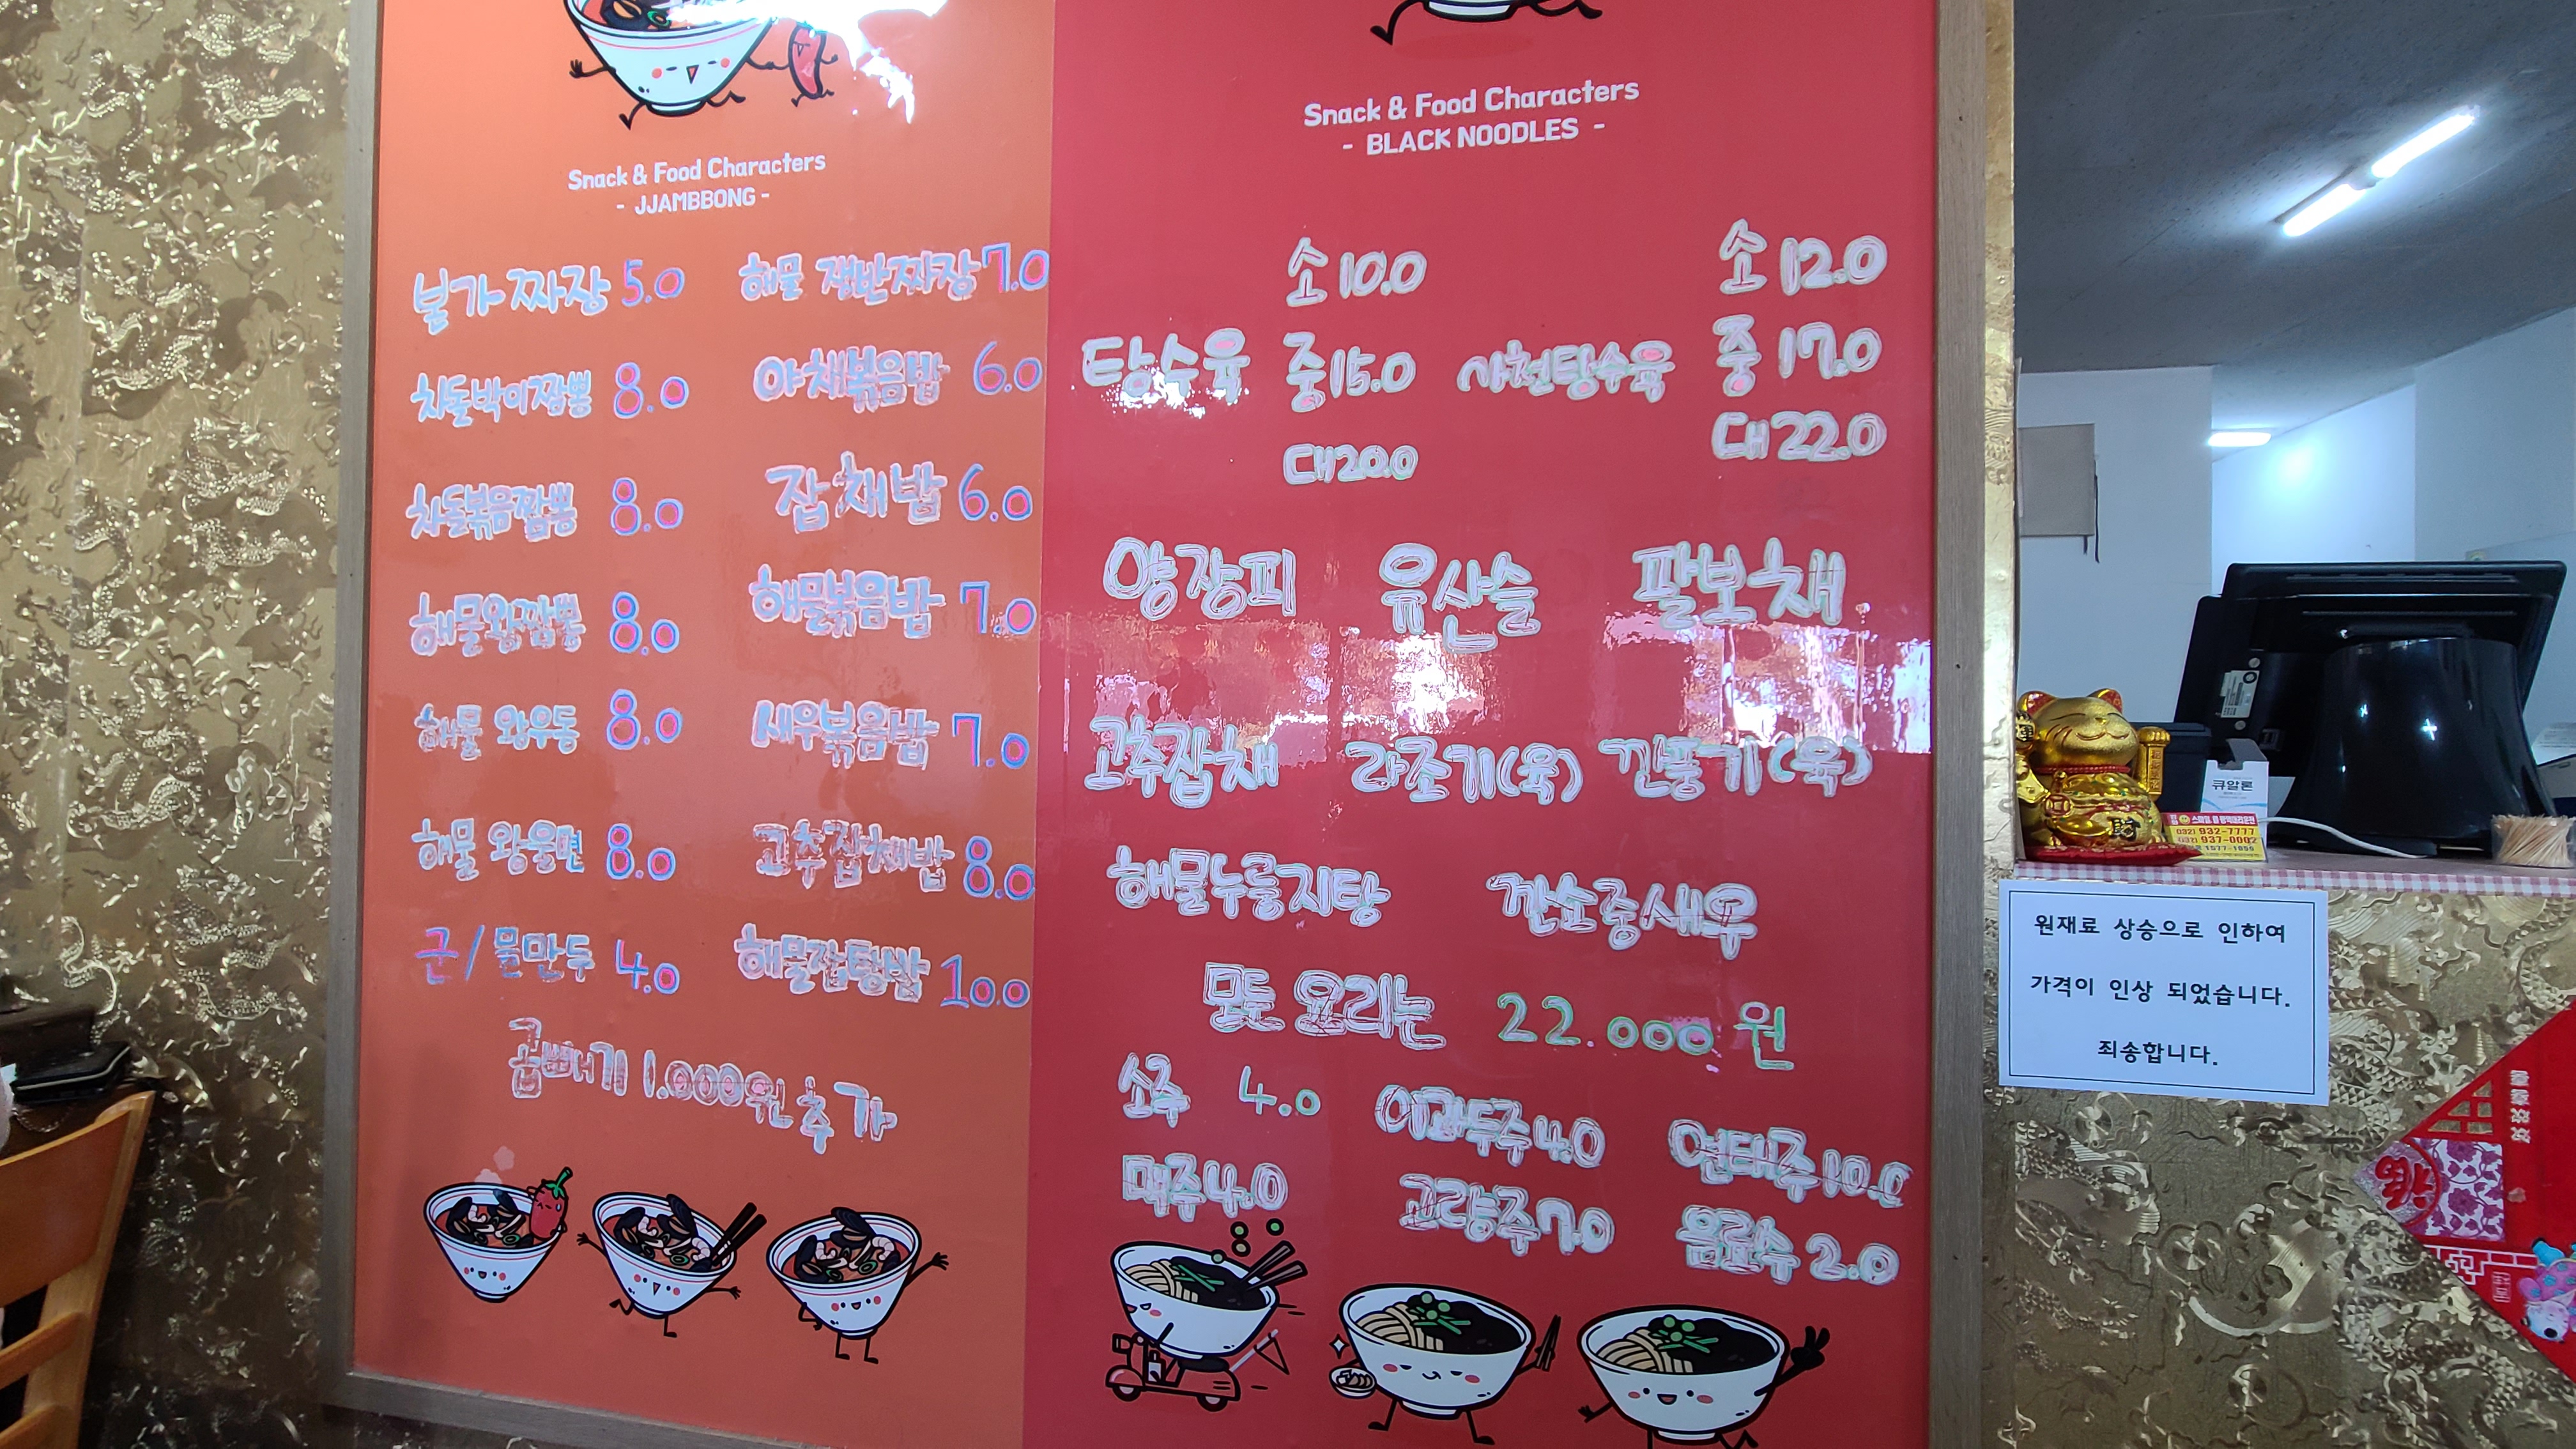 Snack & Food Characters
- JJAMBBONG -
불가짜장 5.0
해물 쟁반짜장 7.0
차돌박이짬뽕 8.0
야채볶음밥 6.0
차돌볶음짬뽕 8.0
잡채밥 6.0
해물왕짬뽕 8.0
해물볶음밥 7.0
해물 왕우동 8.0
새우볶음밥 7.0
해물 왕울면 8.0
고추잡채밥 8.0
군/물만두 4.0
해물잡탕밥 10.0
곱빼기 1.000원 추가
Snack & Food Characters
- BLACK NOODLES -
탕수육
소 10.0
중 15.0
대 20.0
사천탕수육
소 12.0
중 17.0
대 22.0
양장피 유산슬 팔보채
고추잡채 라조기(육) 깐풍기(육)
해물누룽지탕 깐쇼중새우
모듯 요리는 22.000 원
소주 4.0 이과두주 4.0 연태주 10.0
맥주 4.0 고량주 7.0 음료수 2.0
큐알론
(032) 932-7777
937-0002
1577-1055
원재료 상승으로 인하여
가격이 인상 되었습니다.
죄송합니다.
財